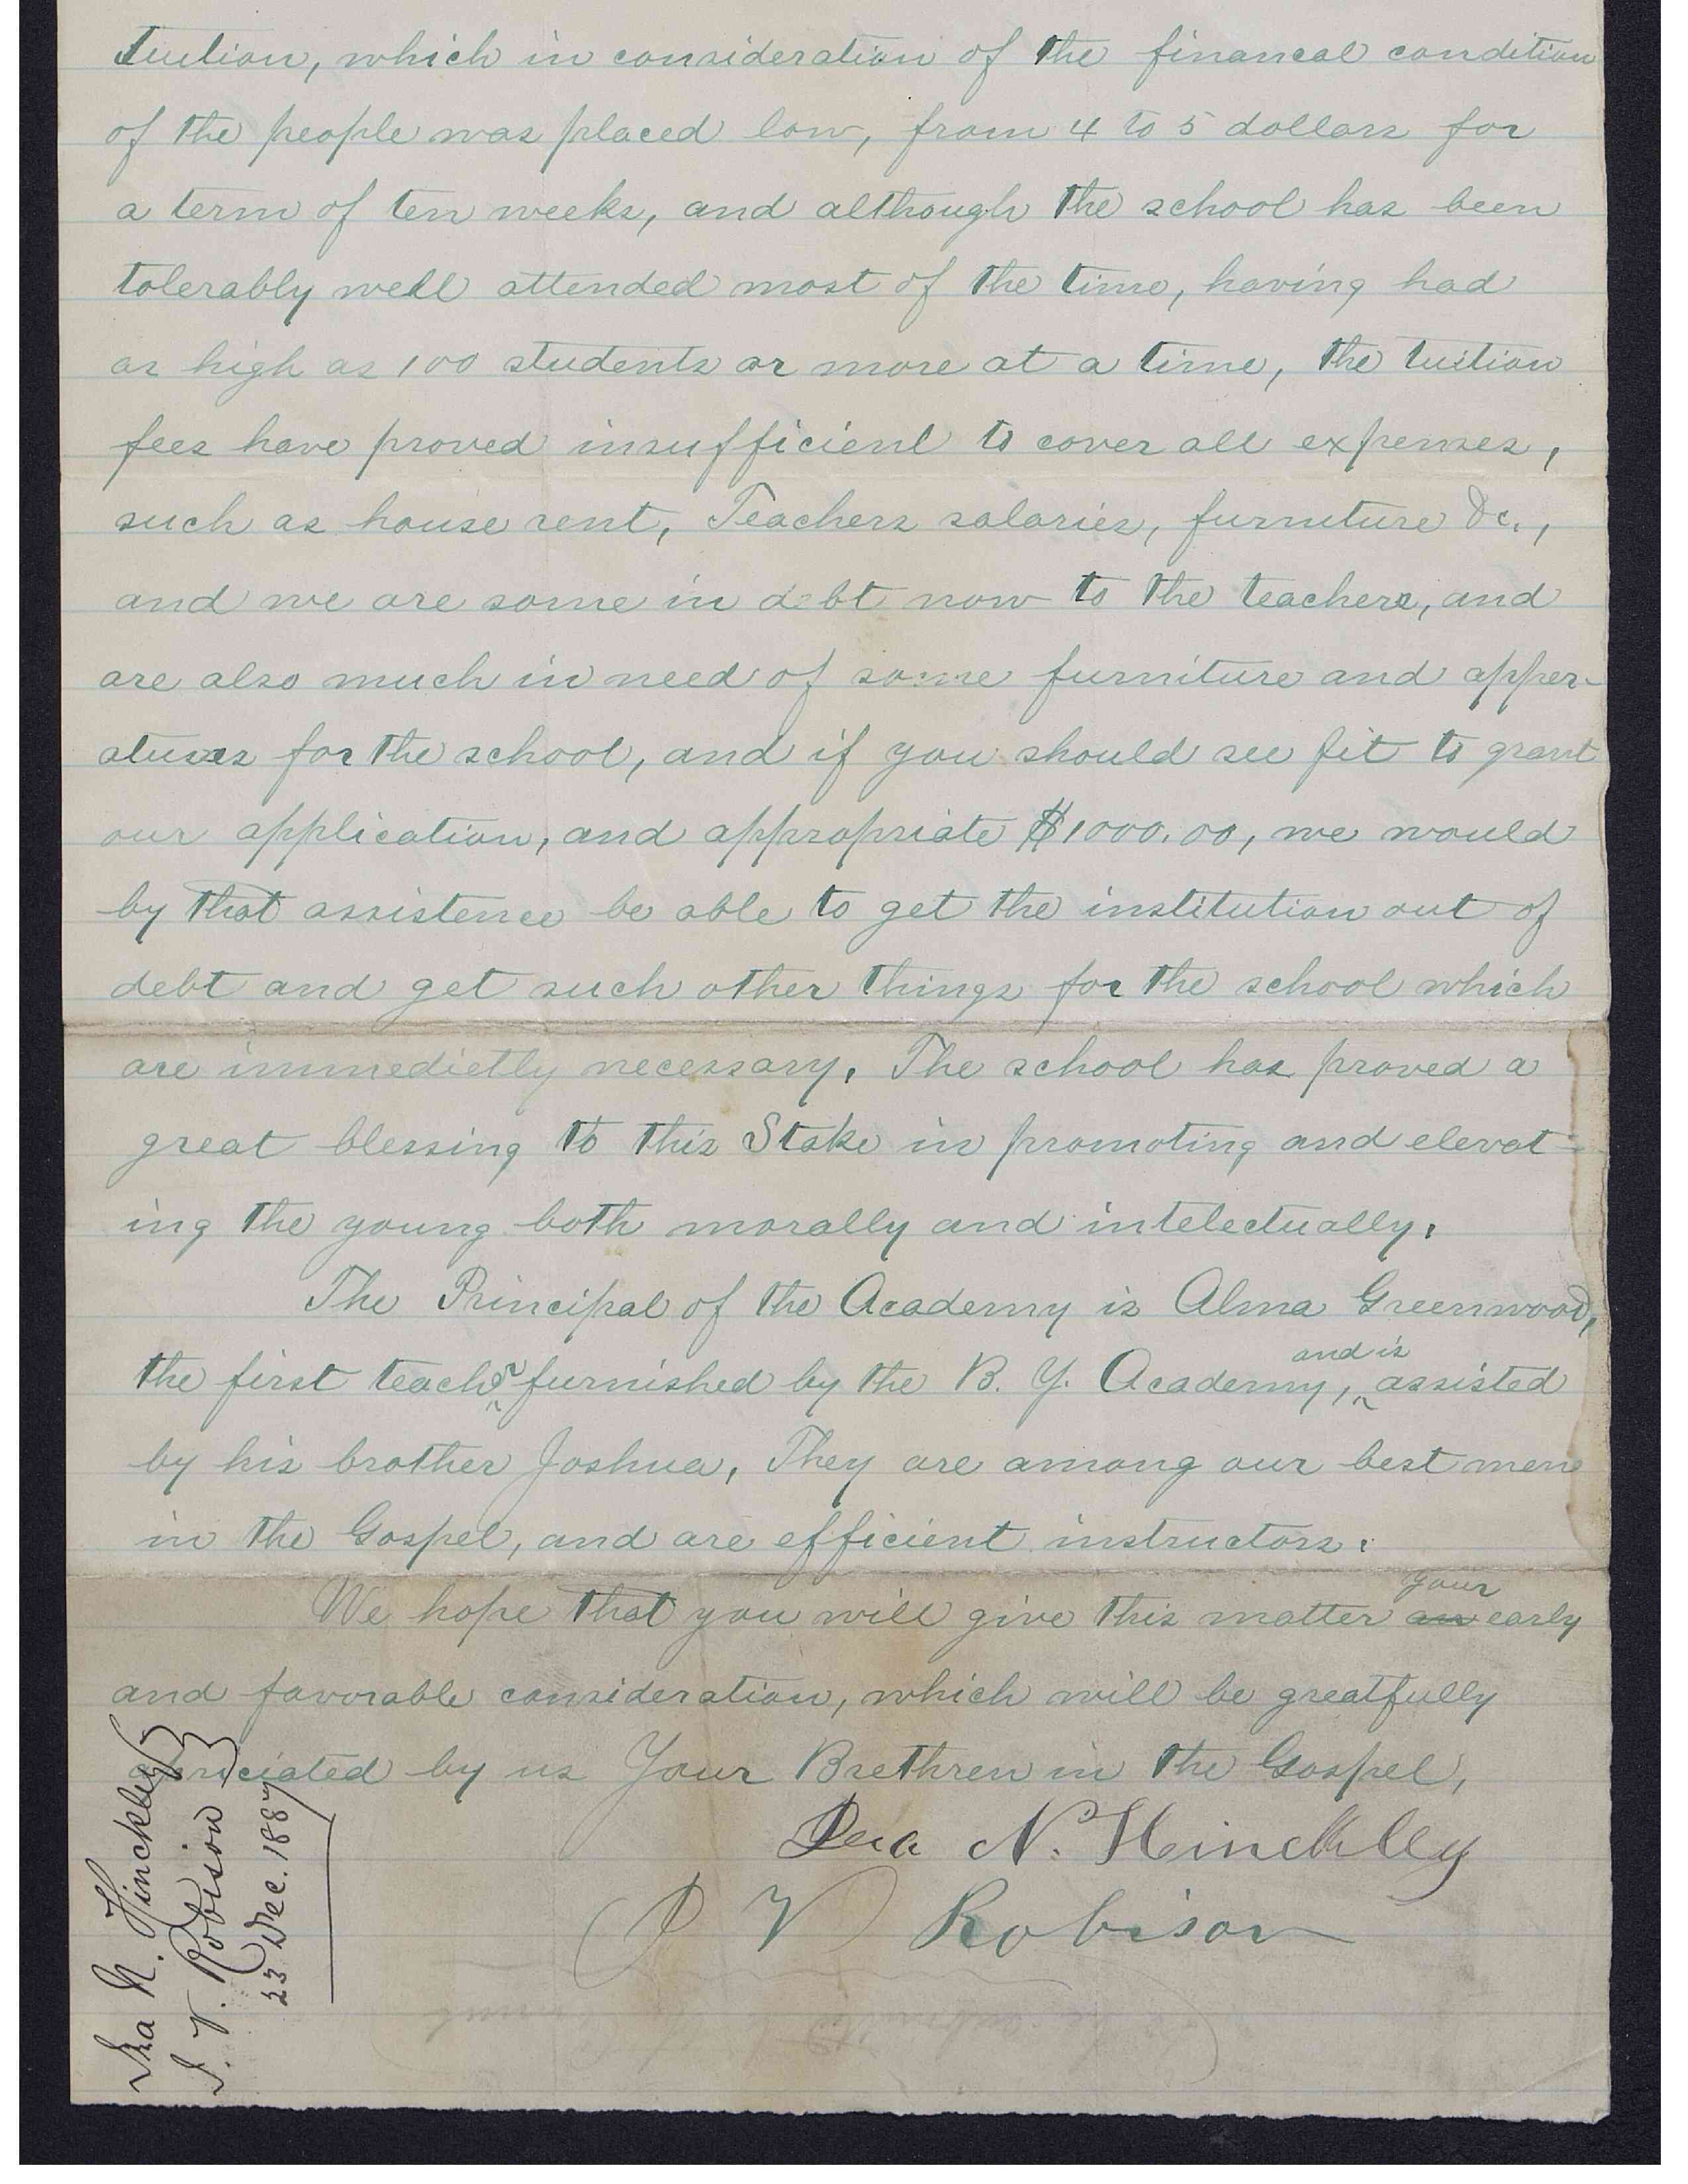 tuition, which in consideration of the financal condition
of the people was placed low, from 4 to 5 dollars for
a term of ten weeks, and although the school has been
tolerably well attended most of the time, having had
as high as 100 students or more at a time, the tuition
fees have proved insufficient to cover all expenses,
such as house rent, Teachers salaries, furniture &c.,
and we are some in debt now to the teachers, and
are also much in need of some furniture and apper-
for the school, and if you should see fit to grant
our application, and appropriate $1000.00, we would
by that assistence be able to get the institution out of
debt and get such other things for the school which
are immedietly necessary. The school has proved a
great blessing to this Stake in promoting and elevat-
ing the young both morally and intelectually.
The Principal of the Academy is Alma Greenwood,
the first teacher furnished by the B. Y. Academy, and is assisted
by his brother Joshua, They are among our best men
in the Gospel, and are efficient instructors.
We hope that you will give this matter an your early
and favorable consideration, which will be greatfully
by us Your Brethren in the Gospel,
Ira N. Hinckley
J V Robison
Ira N. Hinckley
J. V. Robison
23 Dec. 1887